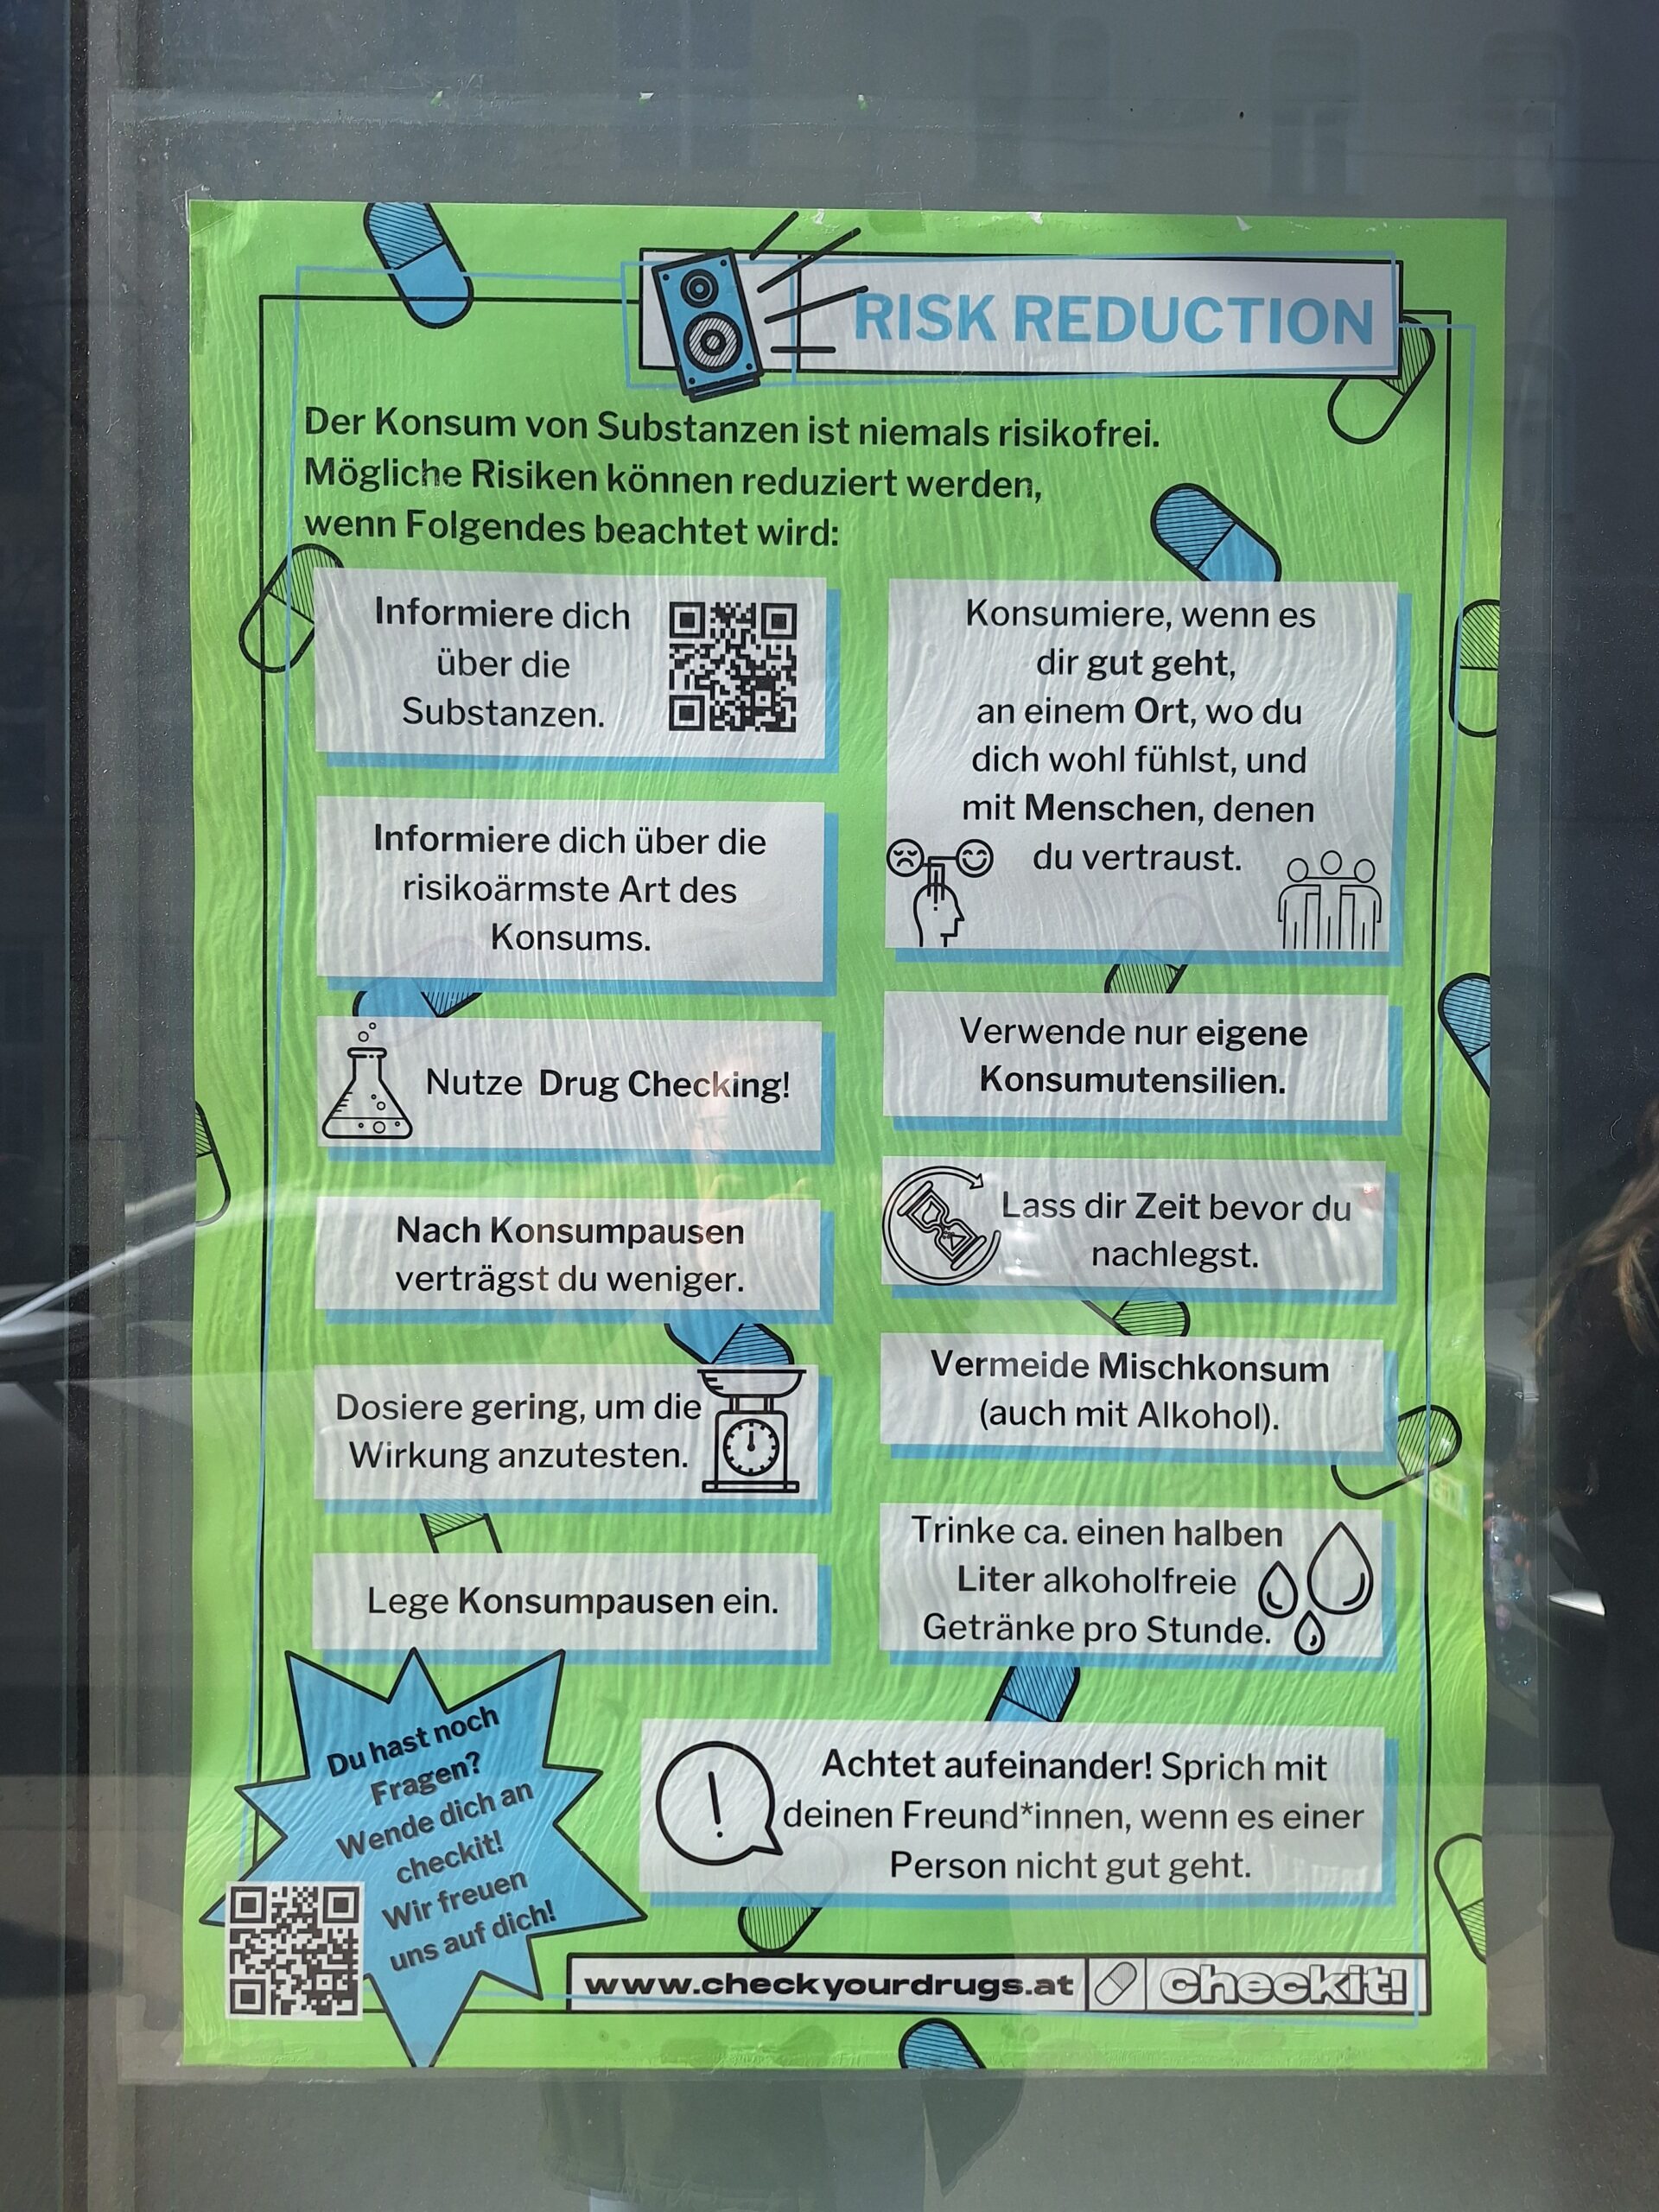 RISK REDUCTION
Der Konsum von Substanzen ist niemals risikofrei.
Mögliche Risiken können reduziert werden,
wenn Folgendes beachtet wird:
Informiere dich
über die
Substanzen.
Informiere dich über die
risikoärmste Art des
Konsums.
Nutze Drug Checking!
Nach Konsumpausen
verträgst du weniger.
Dosiere gering, um die
Wirkung anzutesten.
Lege Konsumpausen ein.
Konsumiere, wenn es
dir gut geht,
an einem Ort, wo du
dich wohl fühlst, und
mit Menschen, denen
du vertraust.
Verwende nur eigene
Konsumutensilien.
Lass dir Zeit bevor du
nachlegst.
Vermeide Mischkonsum
(auch mit Alkohol).
Trinke ca. einen halben
Liter alkoholfreie
Getränke pro Stunde.
Du hast noch
Fragen?
Wende dich an
checkit!
Wir freuen
uns auf dich!
Achtet aufeinander! Sprich mit
deinen Freund*innen, wenn es einer
Person nicht gut geht.
www.checkyourdrugs.at
checkit!